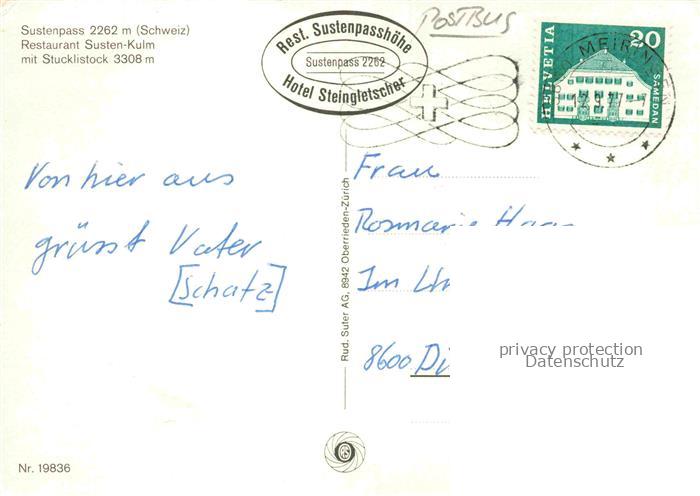 Sustenpass 2262 m (Schweiz)
Restaurant Susten-Kulm
mit Stucklistock 3308 m
Rest. Sustenpasshöhe
Sustenpass 2262
Hotel Steingletscher
POSTBUS
HELVETIA
20
SAMEDAN
MEIRINGEN
Von hier aus
grüsst Vater
[Schatz]
Rud. Suter AG, 8942 Oberrieden-Zürich
Frau
Rosmarie
Im
8600
privacy protection
Datenschutz
Nr. 19836